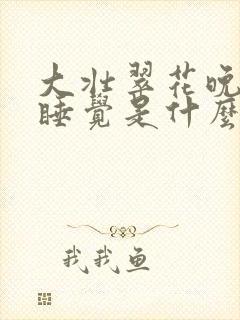 大壮翠花晚
睡覺是什麼
我我鱼